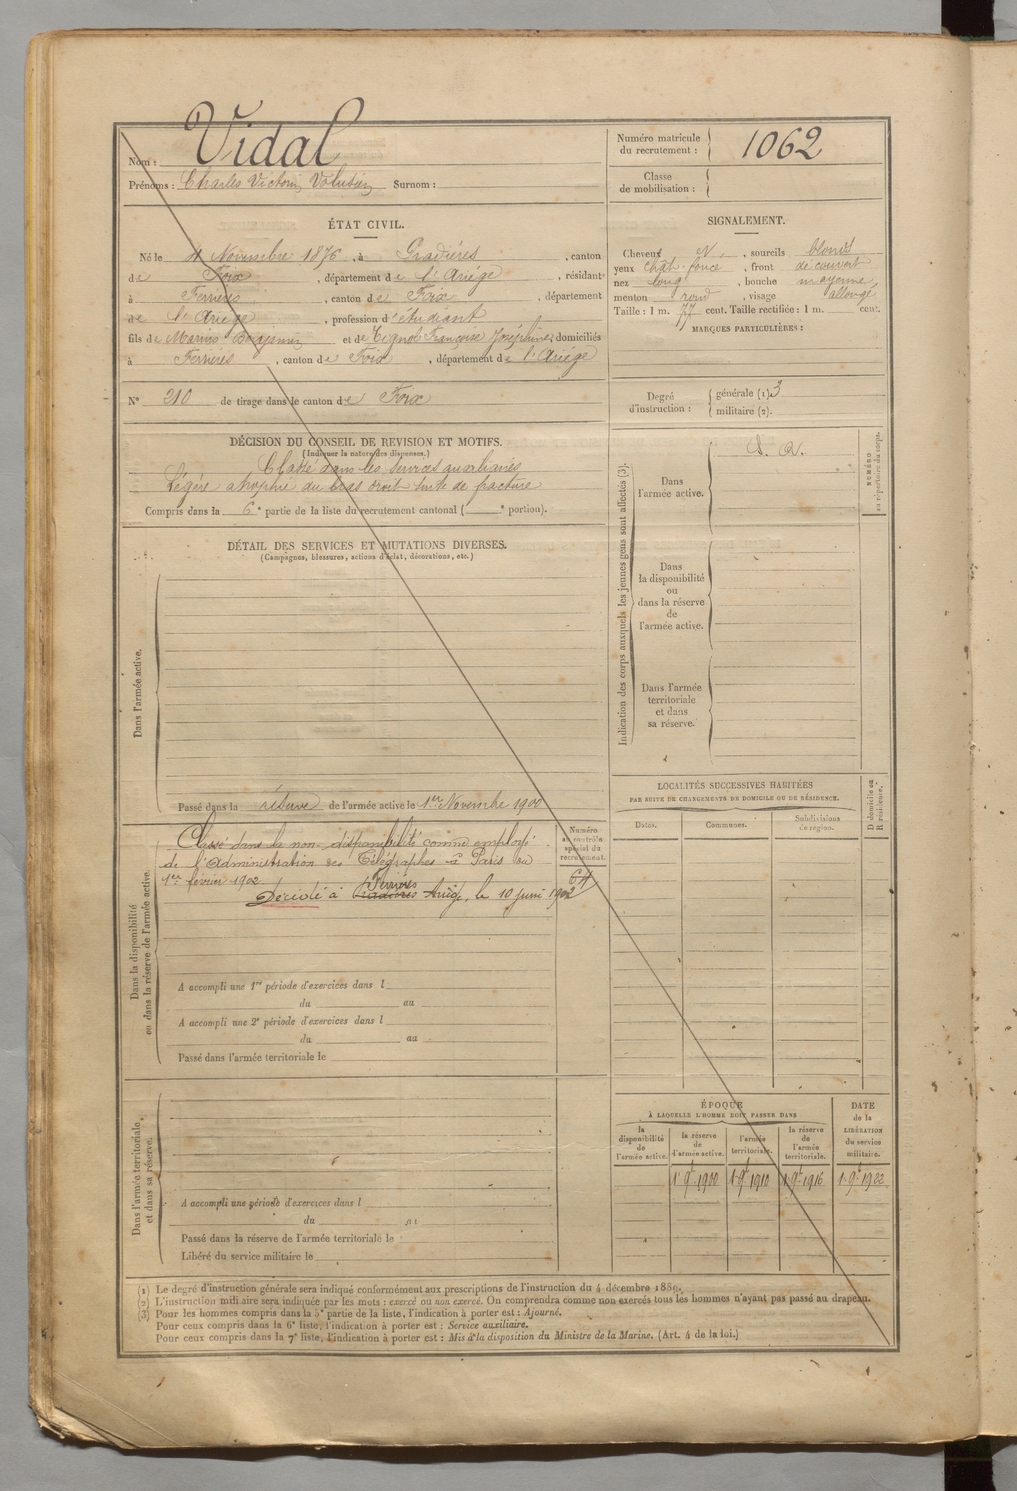 Nom : Vidal
Prénoms : Charles Victorin Volusien Surnom :
Numéro matricule
du recrutement : 1062
Classe
de mobilisation :
ÉTAT CIVIL.
Né le 4 Novembre 1876, à Pradières, canton
de Foix, département de l'Ariège, résidant
à Ferrières, canton de Foix, département
de l'Ariège, profession d'étudiant
fils de Marius Benjamin et de Tignol Françoise Joséphine, domiciliés
à Ferrières, canton de Foix, département de l'Ariège
SIGNALEMENT.
Cheveux N, sourcils blonds
yeux chât. foncé, front découvert
nez long, bouche moyenne,
menton rond, visage allongé
Taille : 1 m. 77 cent. Taille rectifiée : 1 m. cent.
MARQUES PARTICULIÈRES :
N° 210 de tirage dans le canton de Foix
Degré
d'instruction :
générale (1) 3
militaire (2).
DÉCISION DU CONSEIL DE REVISION ET MOTIFS.
(Indiquer la nature des dispenses.)
Classé dans les services auxiliaires
Légère atrophie du bras droit suite de fracture
Compris dans la 6e partie de la liste du recrutement cantonal ( e portion).
DÉTAIL DES SERVICES ET MUTATIONS DIVERSES.
(Campagnes, blessures, actions d'éclat, décorations, etc.)
Dans l'armée active.
Passé dans la réserve de l'armée active le 1er Novembre 1900
Indication des corps auxquels les jeunes gens sont affectés (3).
Dans
l'armée active.
S. A.
Dans
la disponibilité
ou
dans la réserve
de
l'armée active.
Dans l'armée
territoriale
et dans
sa réserve.
NUMÉRO
au répertoire du corps.
Dans la disponibilité
ou dans la réserve de l'armée active.
Classé dans la non-disponibilité comme employé
de l'Administration des Télégraphes à Paris au
1er février 1902
Ferrières
Décédé à Pradières Ariège, le 10 juin 1902
Numéro
au contrôle
spécial du
recrutement.
A accompli une 1re période d'exercices dans l
du au
A accompli une 2e période d'exercices dans l
du au
Passé dans l'armée territoriale le
LOCALITÉS SUCCESSIVES HABITÉES
PAR SUITE DE CHANGEMENTS DE DOMICILE OU DE RÉSIDENCE.
Dates.
Communes.
Subdivisions
de région.
D domicile ou
R résidence.
Dans l'armée territoriale
et dans sa réserve.
A accompli une période d'exercices dans l
du au
Passé dans la réserve de l'armée territoriale le
Libéré du service militaire le
ÉPOQUE
À LAQUELLE L'HOMME DOIT PASSER DANS
la
disponibilité
de
l'armée active.
la réserve
de
l'armée active.
l'armée
territoriale.
la réserve
de
l'armée
territoriale.
DATE
de la
LIBÉRATION
du service
militaire.
1 9b 1900 1 9b 1910 1 9b 1916 1 9b 1922
(1) Le degré d'instruction générale sera indiqué conformément aux prescriptions de l'instruction du 4 décembre 1889.
(2) L'instruction militaire sera indiquée par les mots : exercé ou non exercé. On comprendra comme non exercés tous les hommes n'ayant pas passé au drapeau.
(3) Pour les hommes compris dans la 5e partie de la liste, l'indication à porter est : Ajourné.
Pour ceux compris dans la 6e liste, l'indication à porter est : Service auxiliaire.
Pour ceux compris dans la 7e liste, l'indication à porter est : Mis à la disposition du Ministre de la Marine. (Art. 4 de la loi.)